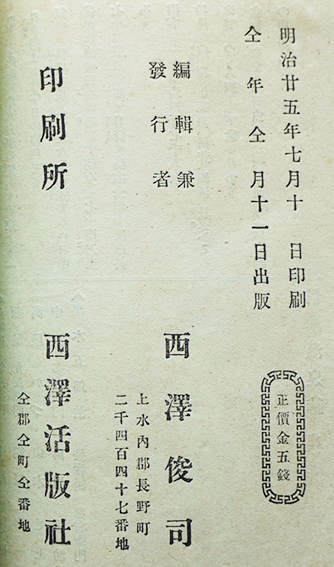 明治廿五年七月十 日印刷
仝年 仝月十一日出版
正價金五錢
編輯兼
發行者
西澤俊司
上水內郡長野町
二千四百四十七番地
印刷所
西澤活版社
仝郡仝町仝番地